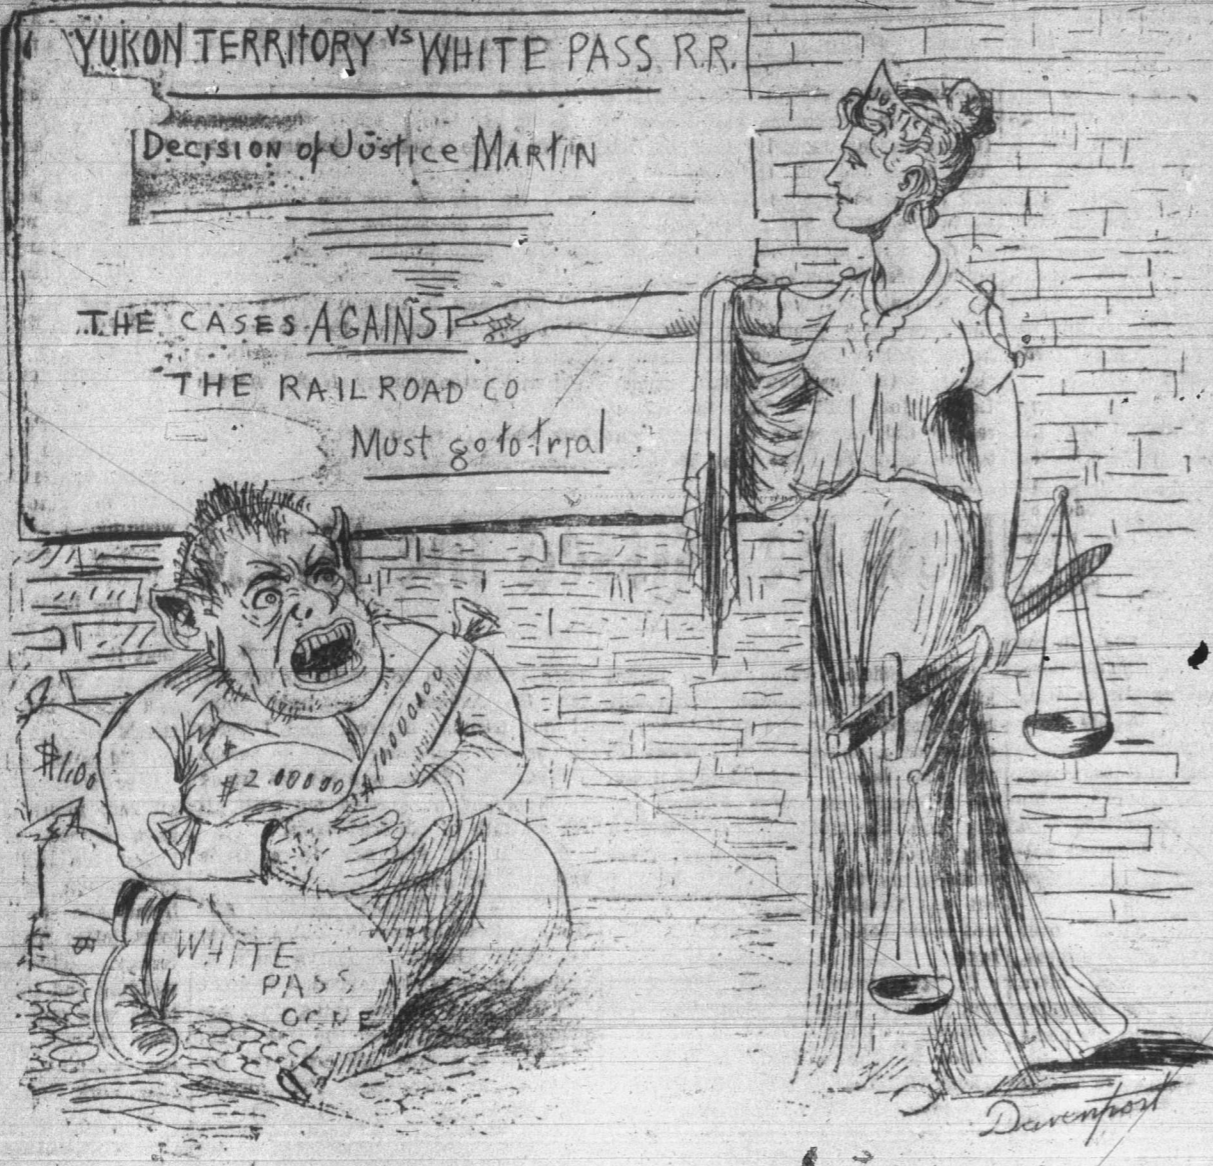 YUKON TERRITORY VS WHITE PASS R.R.
Decision of Justice Martin
THE CASES AGAINST
THE RAILROAD CO
Must go to trial
JUSTICE
$1,00
$2.00000
$10,000000
WHITE
PASS
OGRE
Davenport